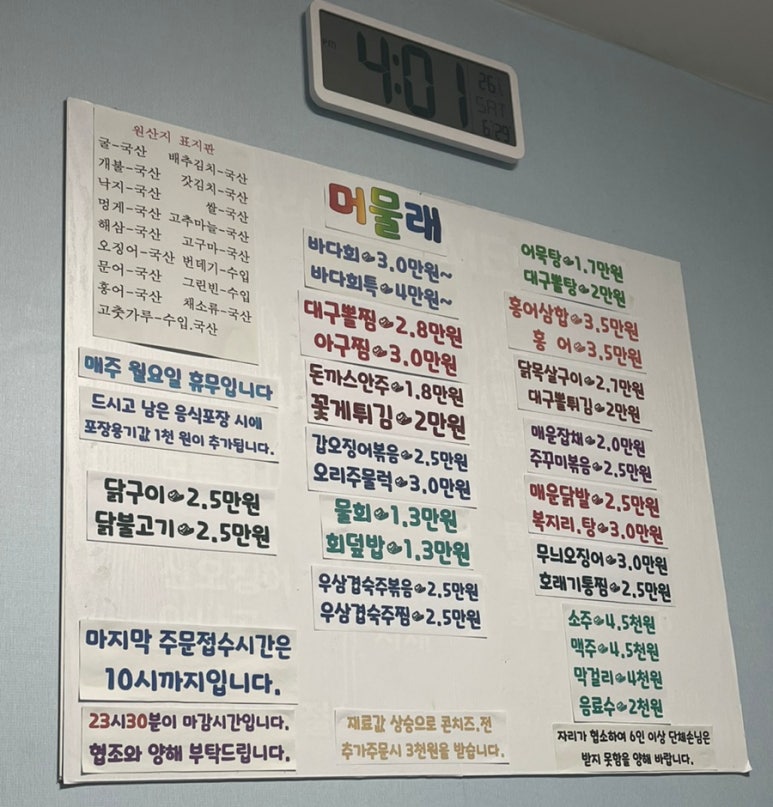 PM
4:01
26
SAT
6/29
원산지 표지판
굴-국산 배추김치-국산
개불-국산 갓김치-국산
낙지-국산 쌀-국산
멍게-국산 고추마늘-국산
해삼-국산 고구마-국산
오징어-국산 번데기-수입
문어-국산 그린빈-수입
홍어-국산 채소류-국산
고춧가루-수입.국산
매주 월요일 휴무입니다
드시고 남은 음식포장 시에
포장용기값 1천 원이 추가됩니다.
닭구이 2.5만원
닭불고기 2.5만원
마지막 주문접수시간은
10시까지입니다.
23시30분이 마감시간입니다.
협조와 양해 부탁드립니다.
머물래
바다회 3.0만원~
바다회특 4만원~
대구뽈찜 2.8만원
아구찜 3.0만원
돈까스안주 1.8만원
꽃게튀김 2만원
갑오징어볶음 2.5만원
오리주물럭 3.0만원
물회 1.3만원
회덮밥 1.3만원
우삼겹숙주볶음 2.5만원
우삼겹숙주찜 2.5만원
재료값 상승으로 콘치즈.전
추가주문시 3천원을 받습니다.
어묵탕 1.7만원
대구뽈탕 2만원
홍어삼합 3.5만원
홍 어 3.5만원
닭목살구이 2.7만원
대구뽈튀김 2만원
매운잡채 2.0만원
주꾸미볶음 2.5만원
매운닭발 2.5만원
복지리.탕 3.0만원
무늬오징어 3.0만원
호래기통찜 2.5만원
소주 4.5천원
맥주 4.5천원
막걸리 4천원
음료수 2천원
자리가 협소하여 6인 이상 단체손님은
받지 못함을 양해 바랍니다.